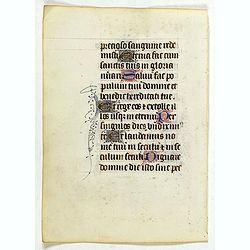 precioso sanguine rede
misti Eterna fac cum
sanctis tuis in gloria
Salvum fac po
pulum tuum domine et
benedic hereditati tue
Et rege eos et extolle il
los usque in eternum Per
singulos dies
te Et laudamus no
men tuum in seculum et in se
culum seculi Dignare
domine die isto sine pec